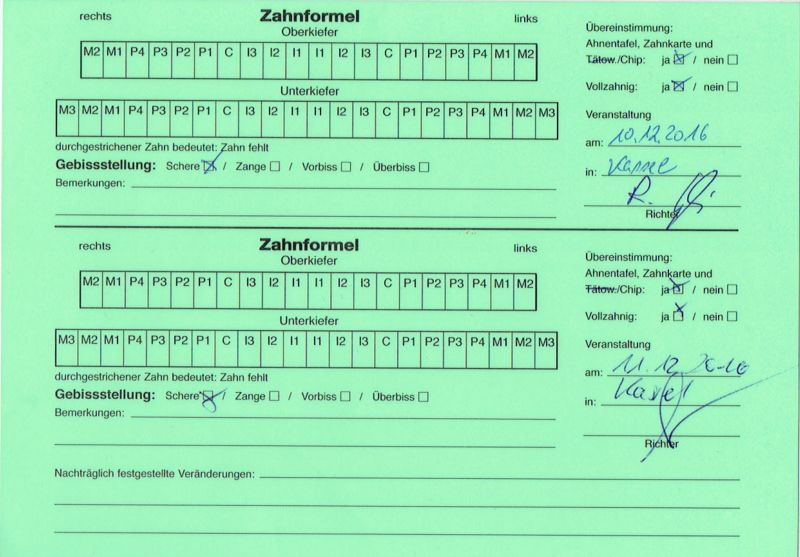 rechts Zahnformel links
Oberkiefer
M2 M1 P4 P3 P2 P1 C I3 I2 I1 I1 I2 I3 C P1 P2 P3 P4 M1 M2
Unterkiefer
M3 M2 M1 P4 P3 P2 P1 C I3 I2 I1 I1 I2 I3 C P1 P2 P3 P4 M1 M2 M3
durchgestrichener Zahn bedeutet: Zahn fehlt
Gebissstellung: Schere / Zange / Vorbiss / Überbiss
Bemerkungen:
Übereinstimmung:
Ahnentafel, Zahnkarte und
Tätow./Chip: ja / nein
Vollzahnig: ja / nein
Veranstaltung
am: 10.12.2016
in: Kassel
R.
Richter
rechts Zahnformel links
Oberkiefer
M2 M1 P4 P3 P2 P1 C I3 I2 I1 I1 I2 I3 C P1 P2 P3 P4 M1 M2
Unterkiefer
M3 M2 M1 P4 P3 P2 P1 C I3 I2 I1 I1 I2 I3 C P1 P2 P3 P4 M1 M2 M3
durchgestrichener Zahn bedeutet: Zahn fehlt
Gebissstellung: Schere / Zange / Vorbiss / Überbiss
Bemerkungen:
Übereinstimmung:
Ahnentafel, Zahnkarte und
Tätow./Chip: ja / nein
Vollzahnig: ja / nein
Veranstaltung
am: 11.12.2016
in: Kassel
Richter
Nachträglich festgestellte Veränderungen: